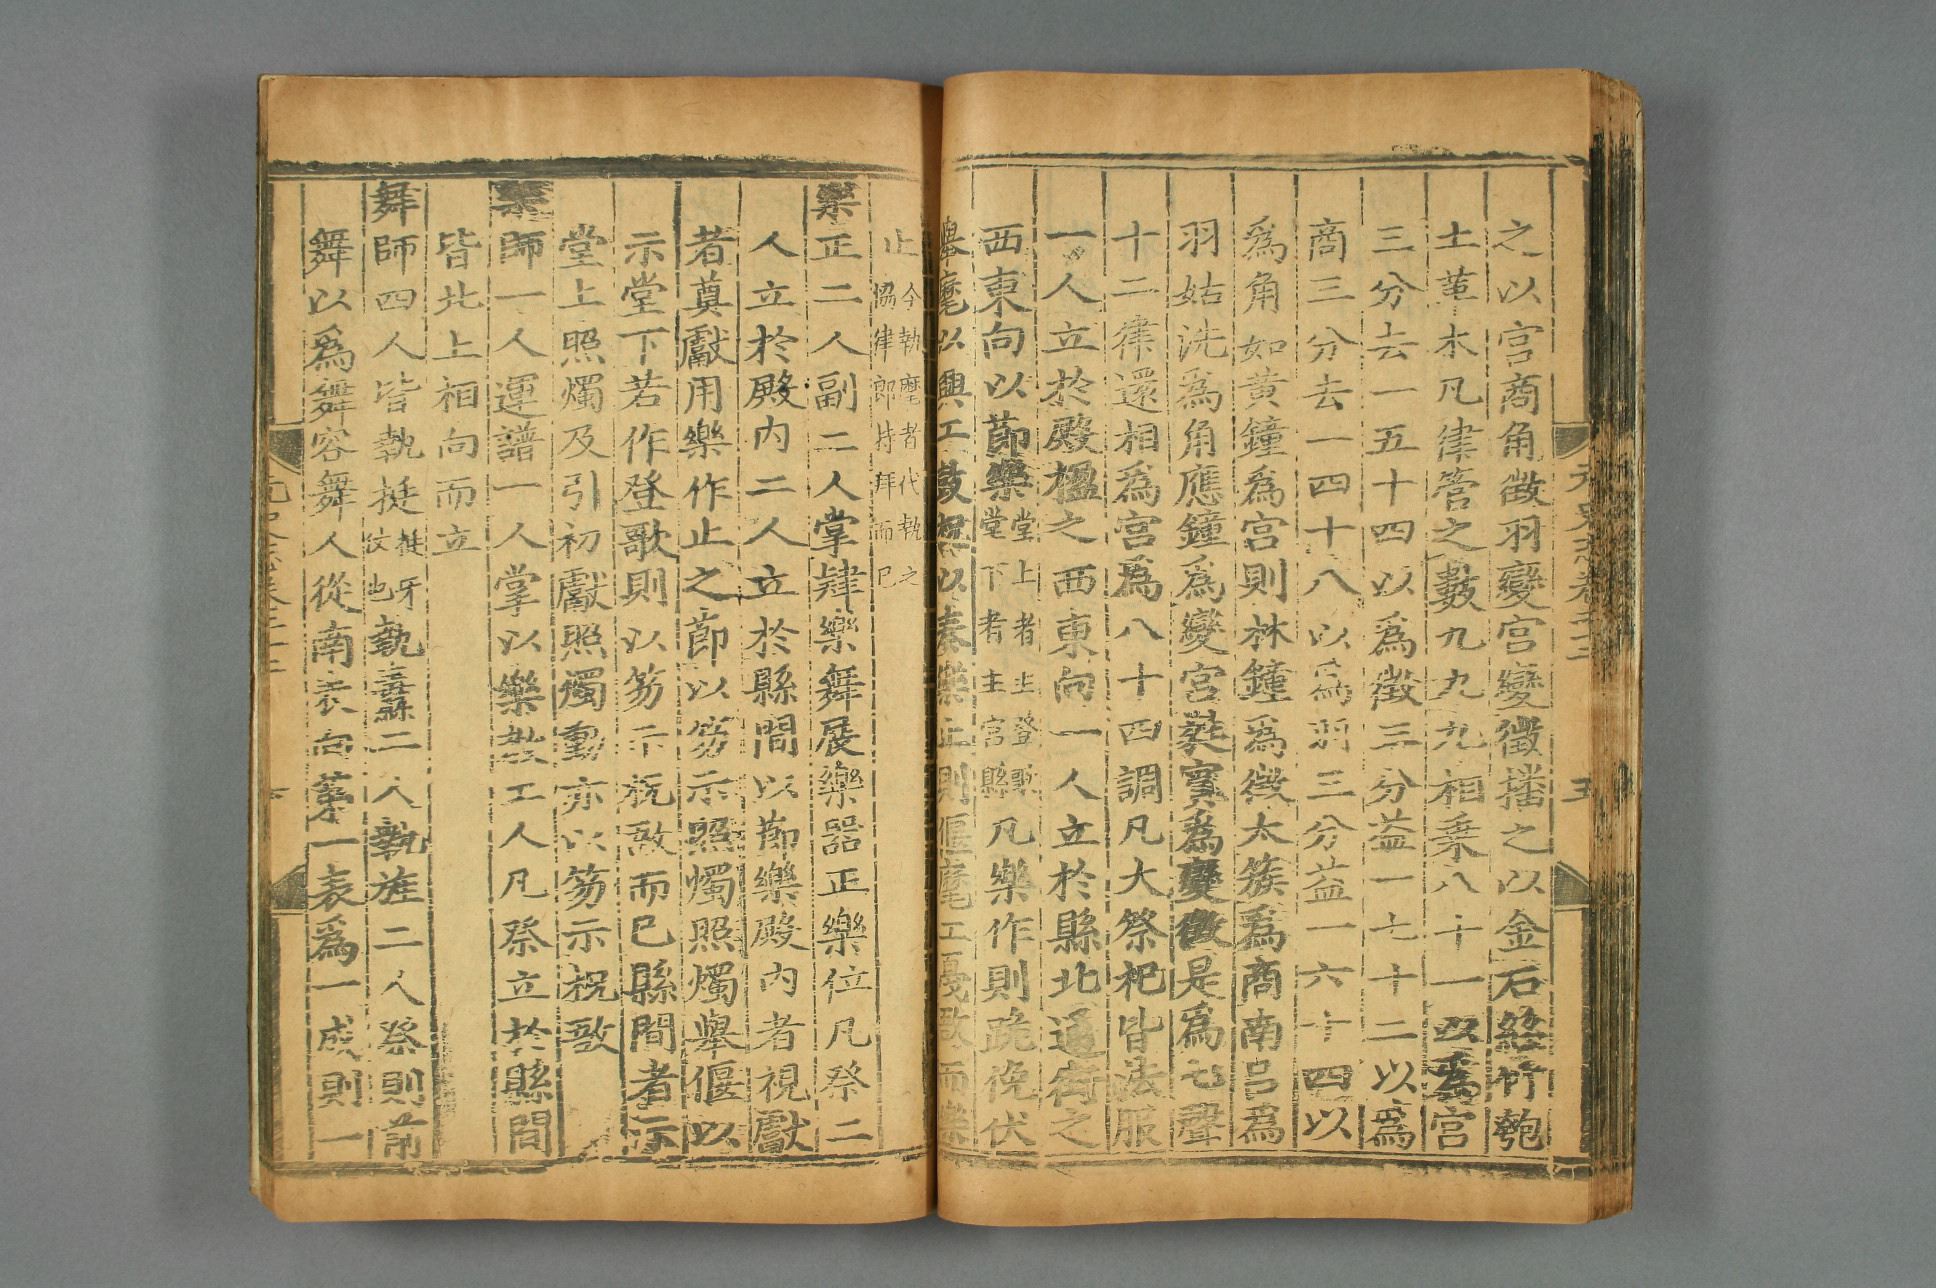 之以宮商角徵羽變宮變徵播之以金石絲竹匏
土革木凡律管之數九九九九相乘八十一以為宮
三分去一五十四以爲徵三分益一七十二以爲
商三分去一四十八以爲羽三分益一六十四以
爲角如黃鐘爲宮則林鐘爲徵太簇爲商南呂爲
羽姑洗爲角應鐘爲變宮蕤賓爲變徵是爲七聲
十二律還相爲宮爲八十四調凡大祭祀皆法服
一人立於殿楹之西東向一人立於縣北通街之
西東向以節樂堂上者主登歌堂下者主宮縣凡樂作則跪俛伏
舉麾以興工鼓柷以奏樂止則偃麾工戛敔而樂
止今執麾者代執之協律郎持拜而已
樂正二人副二人掌肄樂舞展樂器正樂位凡祭二
人立於殿內二人立於縣間以節樂殿內者視獻
者奠獻用樂作止之節以笏示照燭照燭舉偃以
示堂下若作登歌則以笏示柷敔而已縣間者示
堂上照燭及引初獻照燭動亦以笏示柷敔
樂師一人運譜一人掌以樂教工人凡祭立於縣間
皆北上相向而立
舞師四人皆執挺挺牙仗也執纛二人執旌二人祭則前
舞以爲舞容舞人從南表向第一表爲一成則一